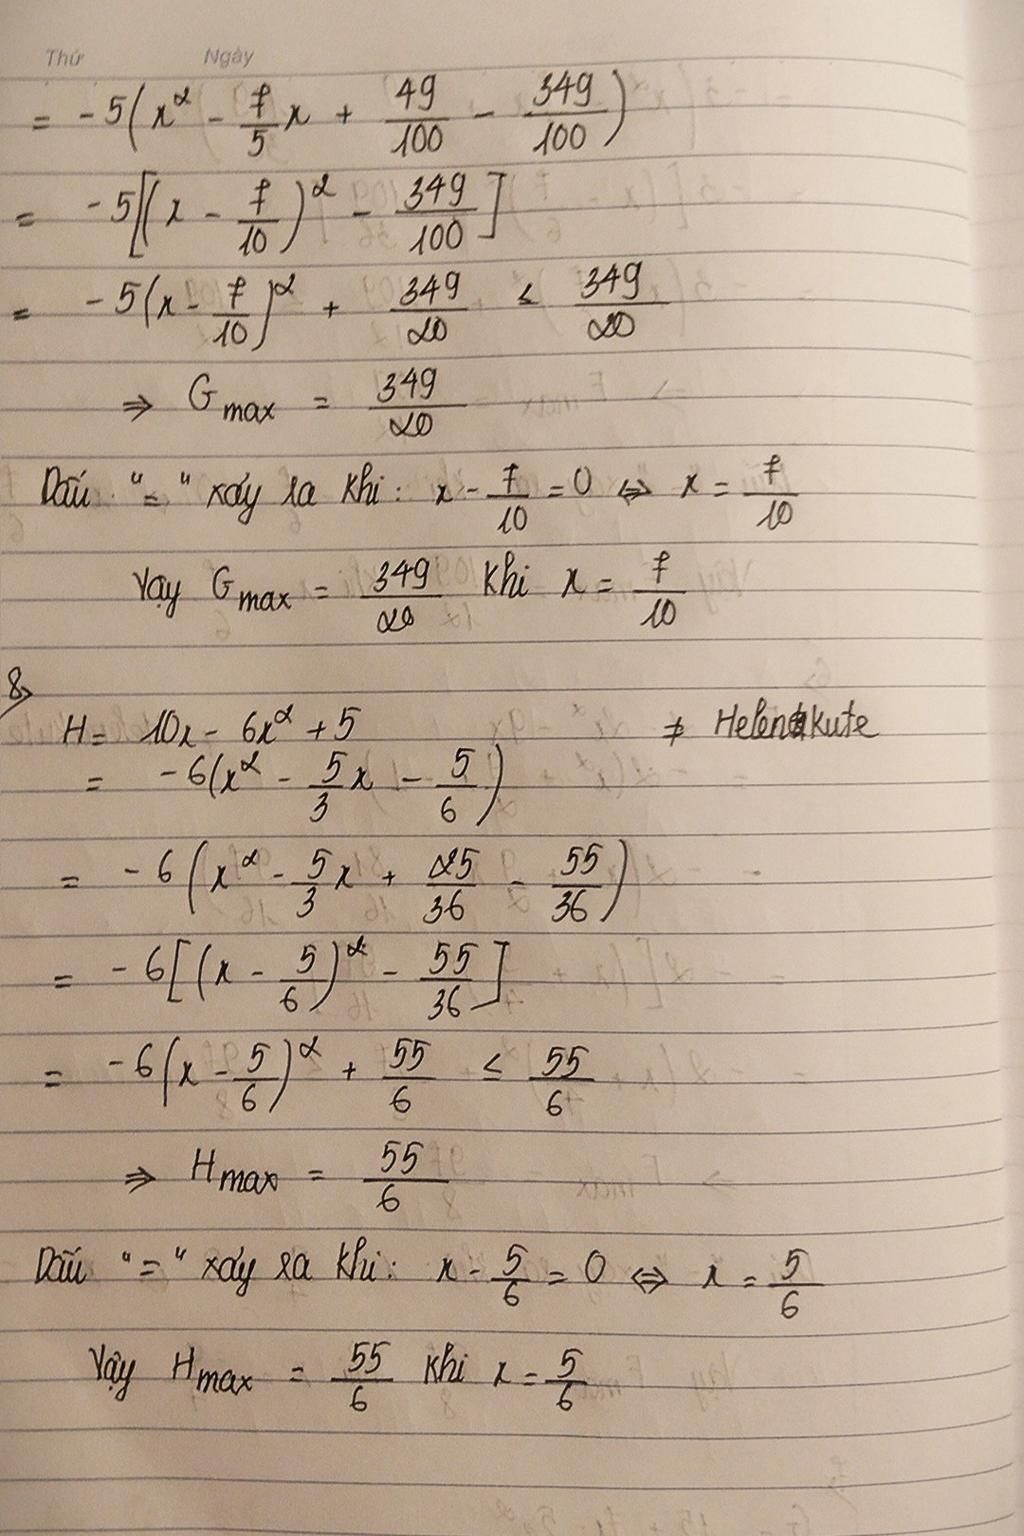 Thứ Ngày
= -5(x² - 7/5 x + 49/100 - 349/100)
= -5[(x - 7/10)² - 349/100]
= -5(x - 7/10)² + 349/20 ≤ 349/20
⇒ Gmax = 349/20
Dấu "=" xảy ra khi: x - 7/10 = 0 ⇔ x = 7/10
Vậy Gmax = 349/20 khi x = 7/10
8,
H = 10x - 6x² + 5 # Helen Kute
= -6(x² - 5/3 x - 5/6)
= -6(x² - 5/3 x + 25/36 - 55/36)
= -6[(x - 5/6)² - 55/36]
= -6(x - 5/6)² + 55/6 ≤ 55/6
⇒ Hmax = 55/6
Dấu "=" xảy ra khi: x - 5/6 = 0 ⇔ x = 5/6
Vậy Hmax = 55/6 khi x = 5/6